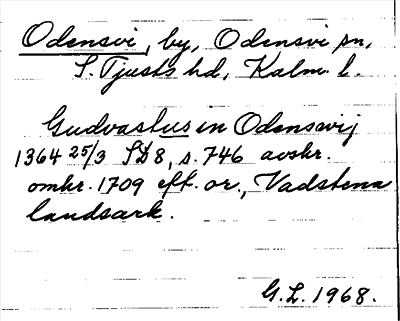 Odensvi, by, Odensvi sn,
S. Tjusts hd, Kalm. l.
Gudvastus in Odenswij
1364 25/3 SD 8, s. 746 avskr.
omkr. 1709 eft. or., Vadstena
landsark.
G.L. 1968.